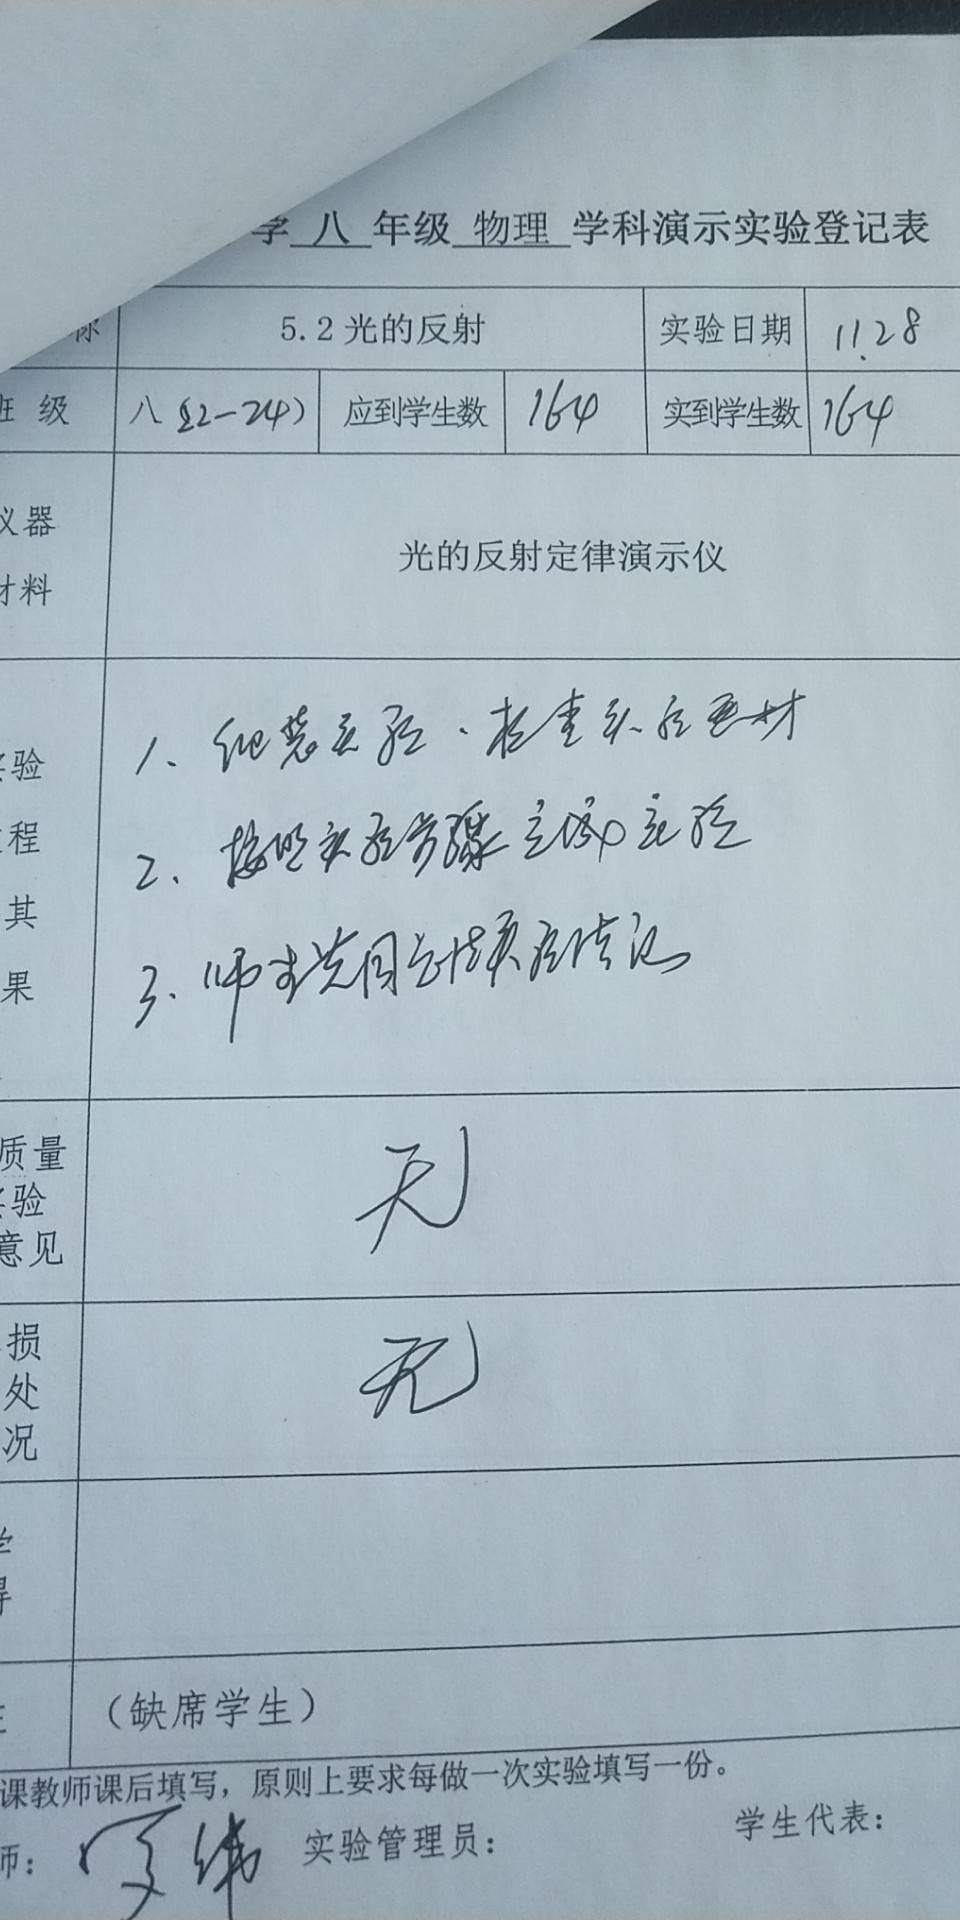 学 八 年级 物理 学科演示实验登记表
称 5.2光的反射 实验日期 11.28
班 级 八(22-24) 应到学生数 164 实到学生数 164
仪器
材料
光的反射定律演示仪
实验
过程
其
果
1、组装实验、检查实验器材
2、按照实验步骤完成实验
3、师生共同总结实验情况
质量
实验
意见
无
损
处
况
无
学
得
(缺席学生)
课教师课后填写，原则上要求每做一次实验填写一份。
师： 实验管理员： 学生代表：